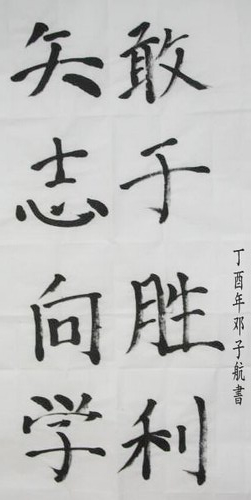 敢于胜利
矢志向学
丁酉年邓子航書